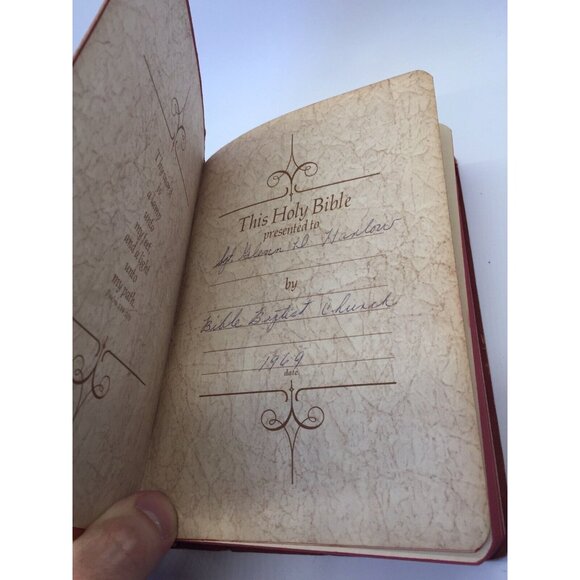 Thy word
is
a lamp
unto
my feet
and a light
unto
my path.
This Holy Bible
presented to
Sgt Glenn D Hanlow
by
Bible Baptist Church
1969
date